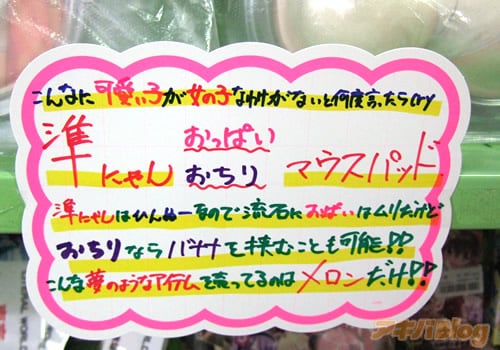 こんなに可愛い子が女の子な訳がないと何度言ったらcry
準にゃん おっぱい おちり マウスパッド
準にゃんはひんぬーなので流石におっぱいはムリだけど
おちりならバナナを挟むことも可能!!
こんな夢のようなアイテムを売ってるのはメロンだけ!!
アキバBlog